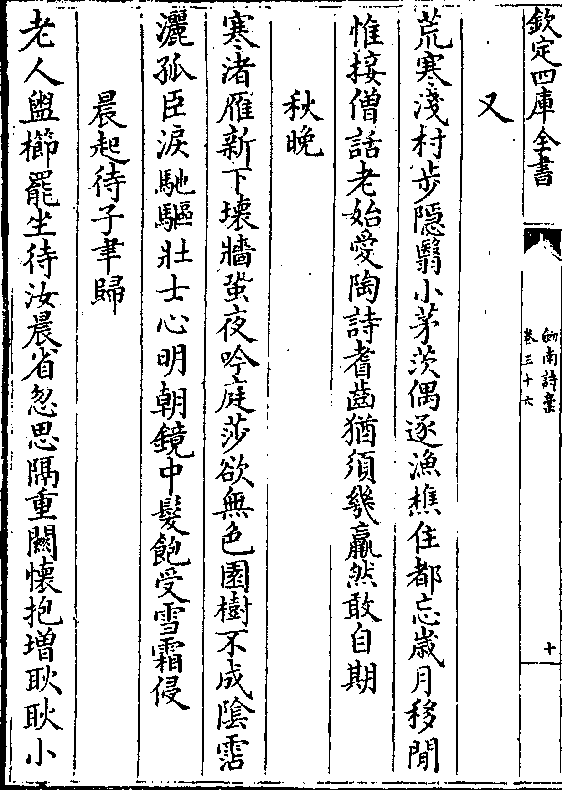 欽定四庫全書
劒南詩藁
卷三十六
十
又
荒寒淺村步隱翳小茅茨偶逐漁樵住都忘嵗月移閒
惟接僧話老始愛陶詩耆齒猶須幾羸然敢自期
秋晚
寒渚雁新下壊牆蛩夜吟庭莎欲無色園樹不成陰霑
灑孤臣淚馳驅壯士心明朝鏡中髮飽受雪霜侵
晨起待子聿歸
老人盥櫛罷坐待汝晨省忽思隔重闗懐抱増耿耿小